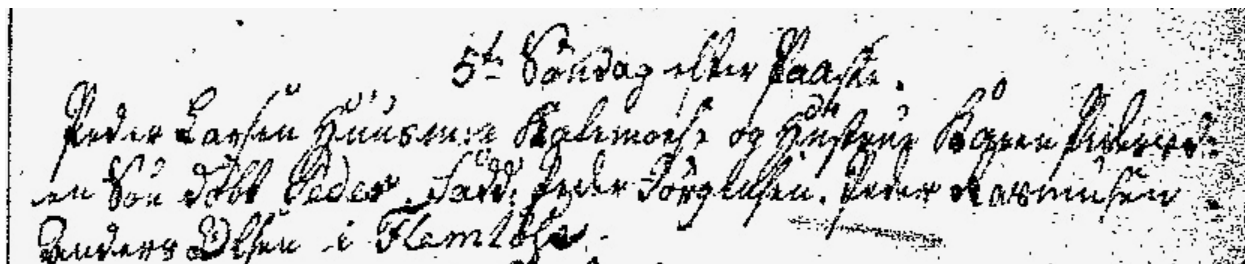 5te Söndag efter Paaske.
Peder Larsen Huusm: i Kalemoese og Hustrue Karen Peders:
en Sön döbt Peder. Fadd: Peder Jörgensen. Peder Rasmusen
Anders Olsen i Flemlöse.